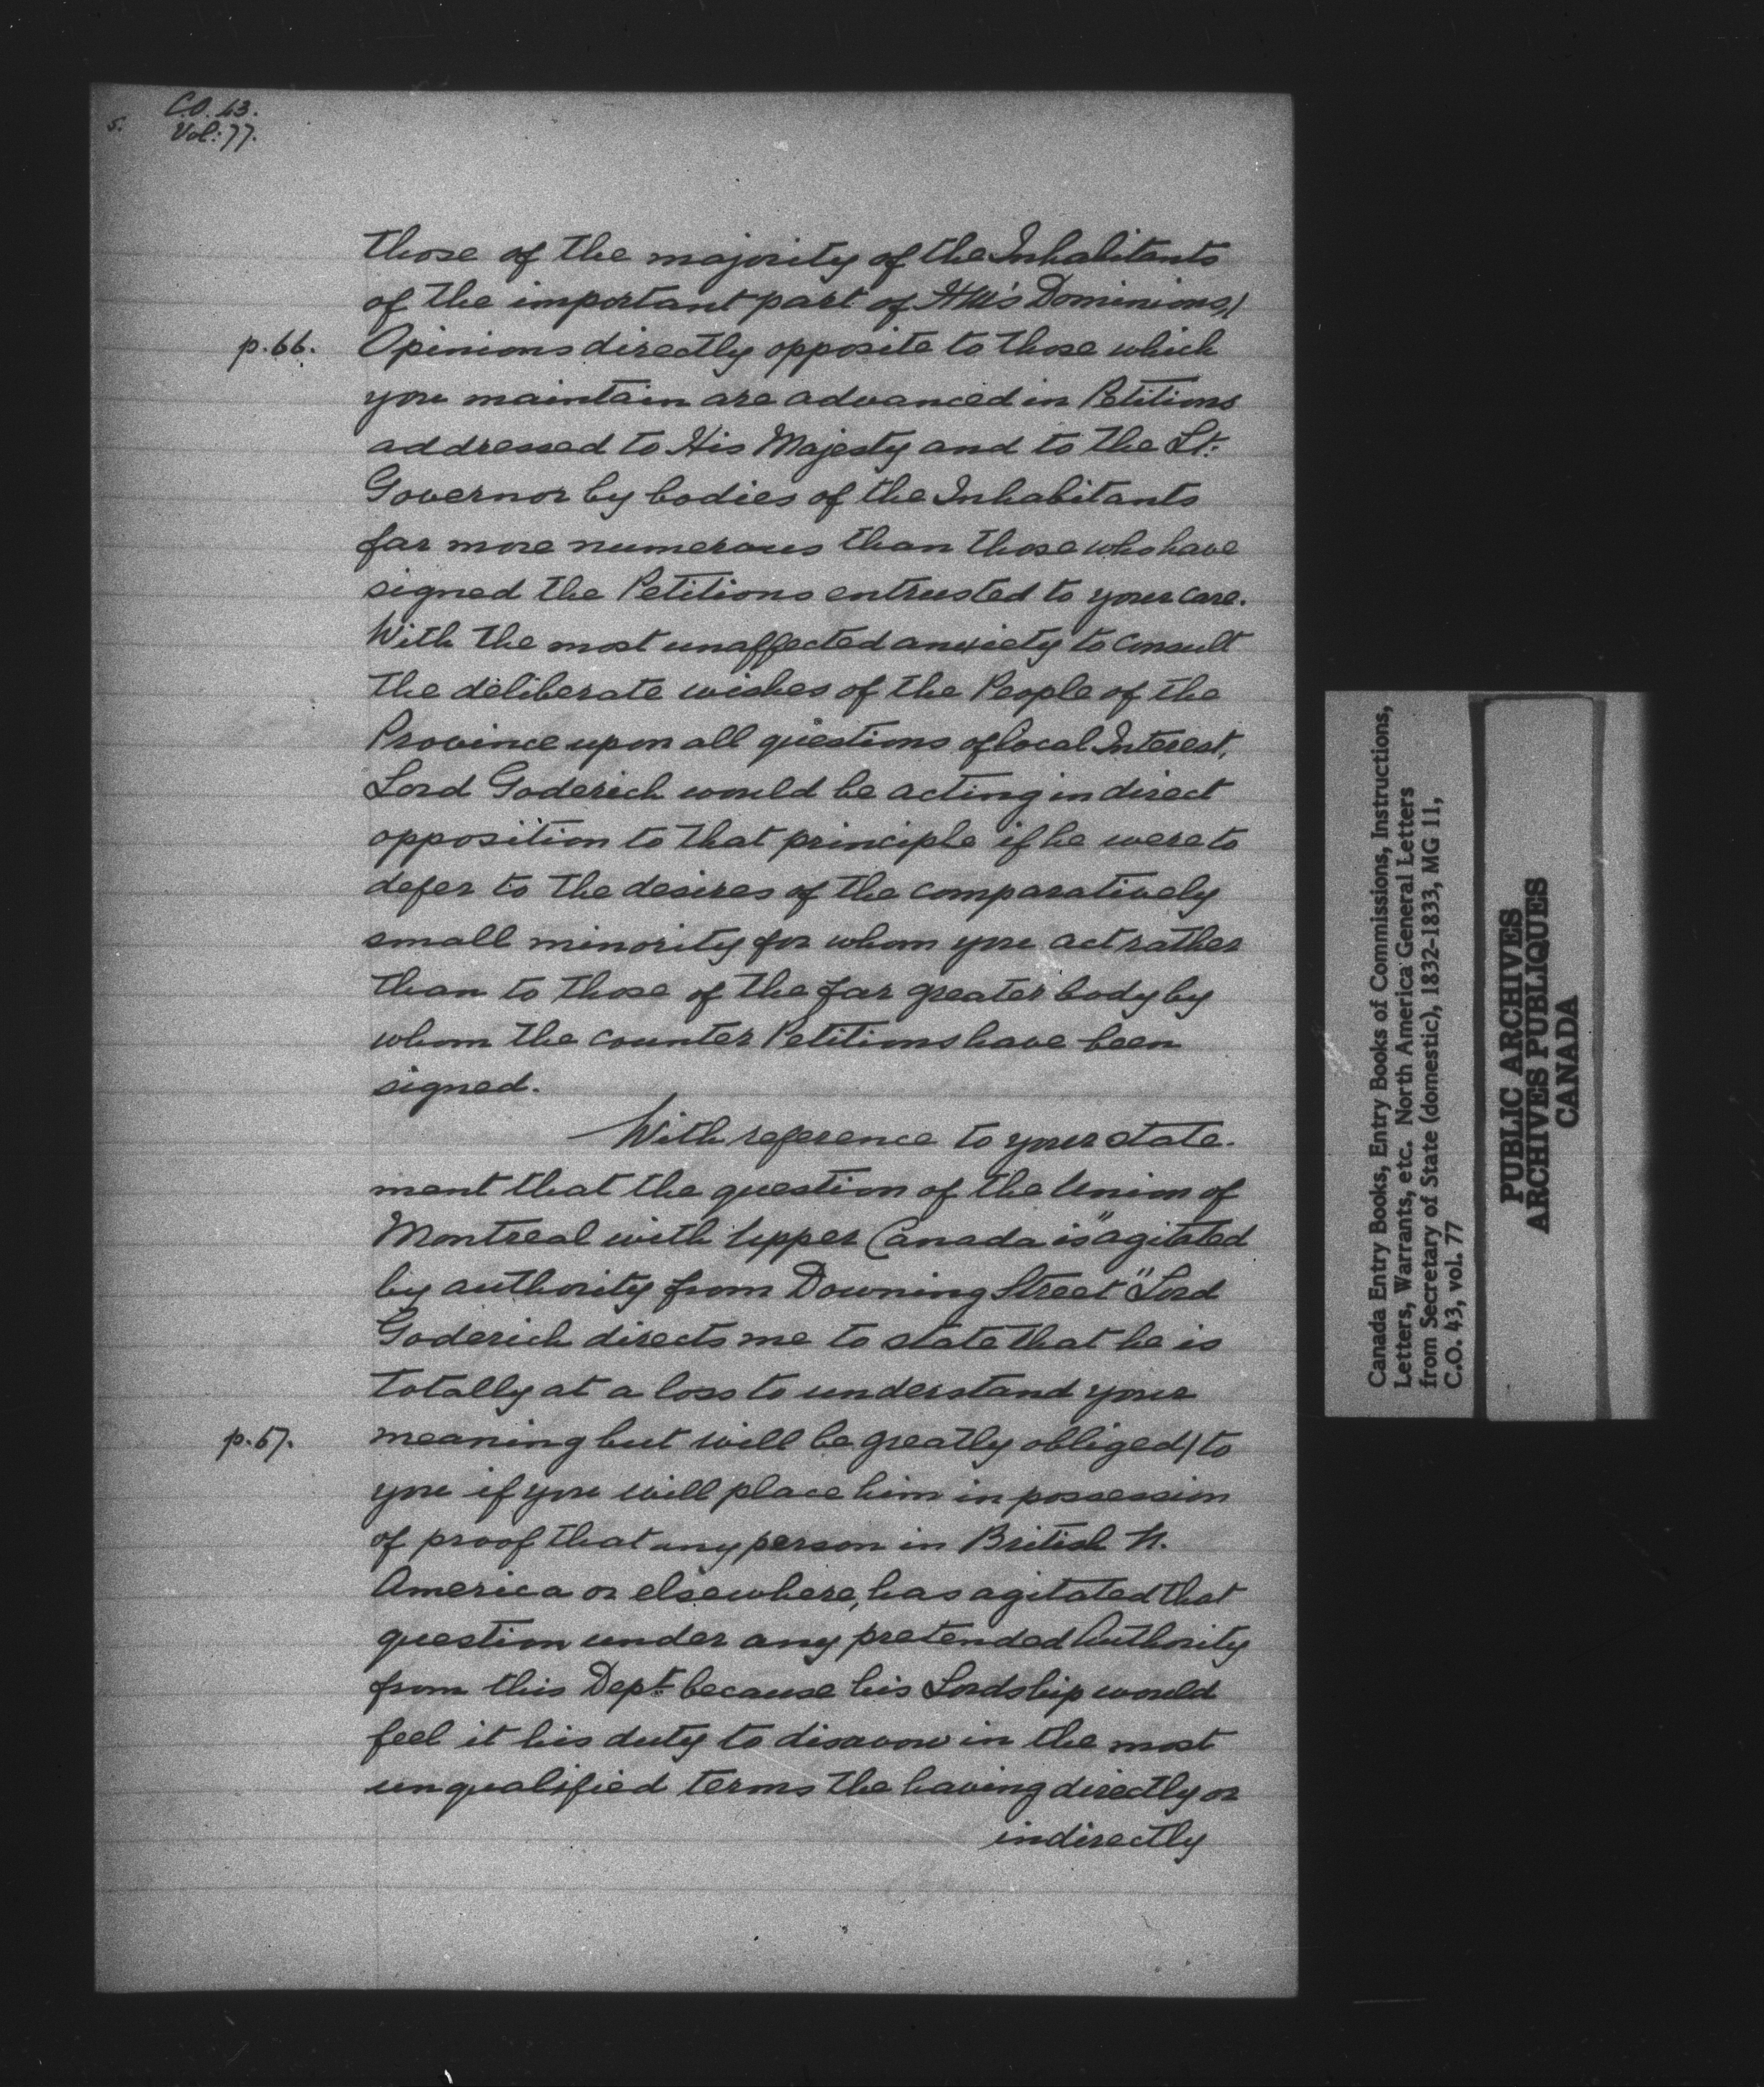 5.
C.O. 43.
Vol: 77.
those of the majority of the Inhabitants
of the important part of HM's Dominions,/
p. 66. Opinions directly opposite to those which
you maintain are advanced in Petitions
addressed to His Majesty and to the Lt.
Governor by bodies of the Inhabitants
far more numerous than those who have
signed the Petitions entrusted to your care.
With the most unaffected anxiety to consult
the deliberate wishes of the People of the
Province upon all questions of local Interest,
Lord Goderich would be acting in direct
opposition to that principle if he were to
defer to the desires of the comparatively
small minority for whom you act rather
than to those of the far greater body by
whom the counter Petitions have been
signed.
With reference to your state-
ment that the question of the Union of
Montreal with Upper Canada is "agitated
by authority from Downing Street" Lord
Goderich directs me to state that he is
totally at a loss to understand your
p. 67. meaning but will be greatly obliged/ to
you if you will place him in possession
of proof that any person in British N.
America or elsewhere, has agitated that
question under any pretended Authority
from this Dept. because his Lordship would
feel it his duty to disavow in the most
unqualified terms the having directly or
indirectly
Canada Entry Books, Entry Books of Commissions, Instructions,
Letters, Warrants, etc. North America General Letters
from Secretary of State (domestic), 1832-1833, MG 11,
C.O. 43, vol. 77
PUBLIC ARCHIVES
ARCHIVES PUBLIQUES
CANADA